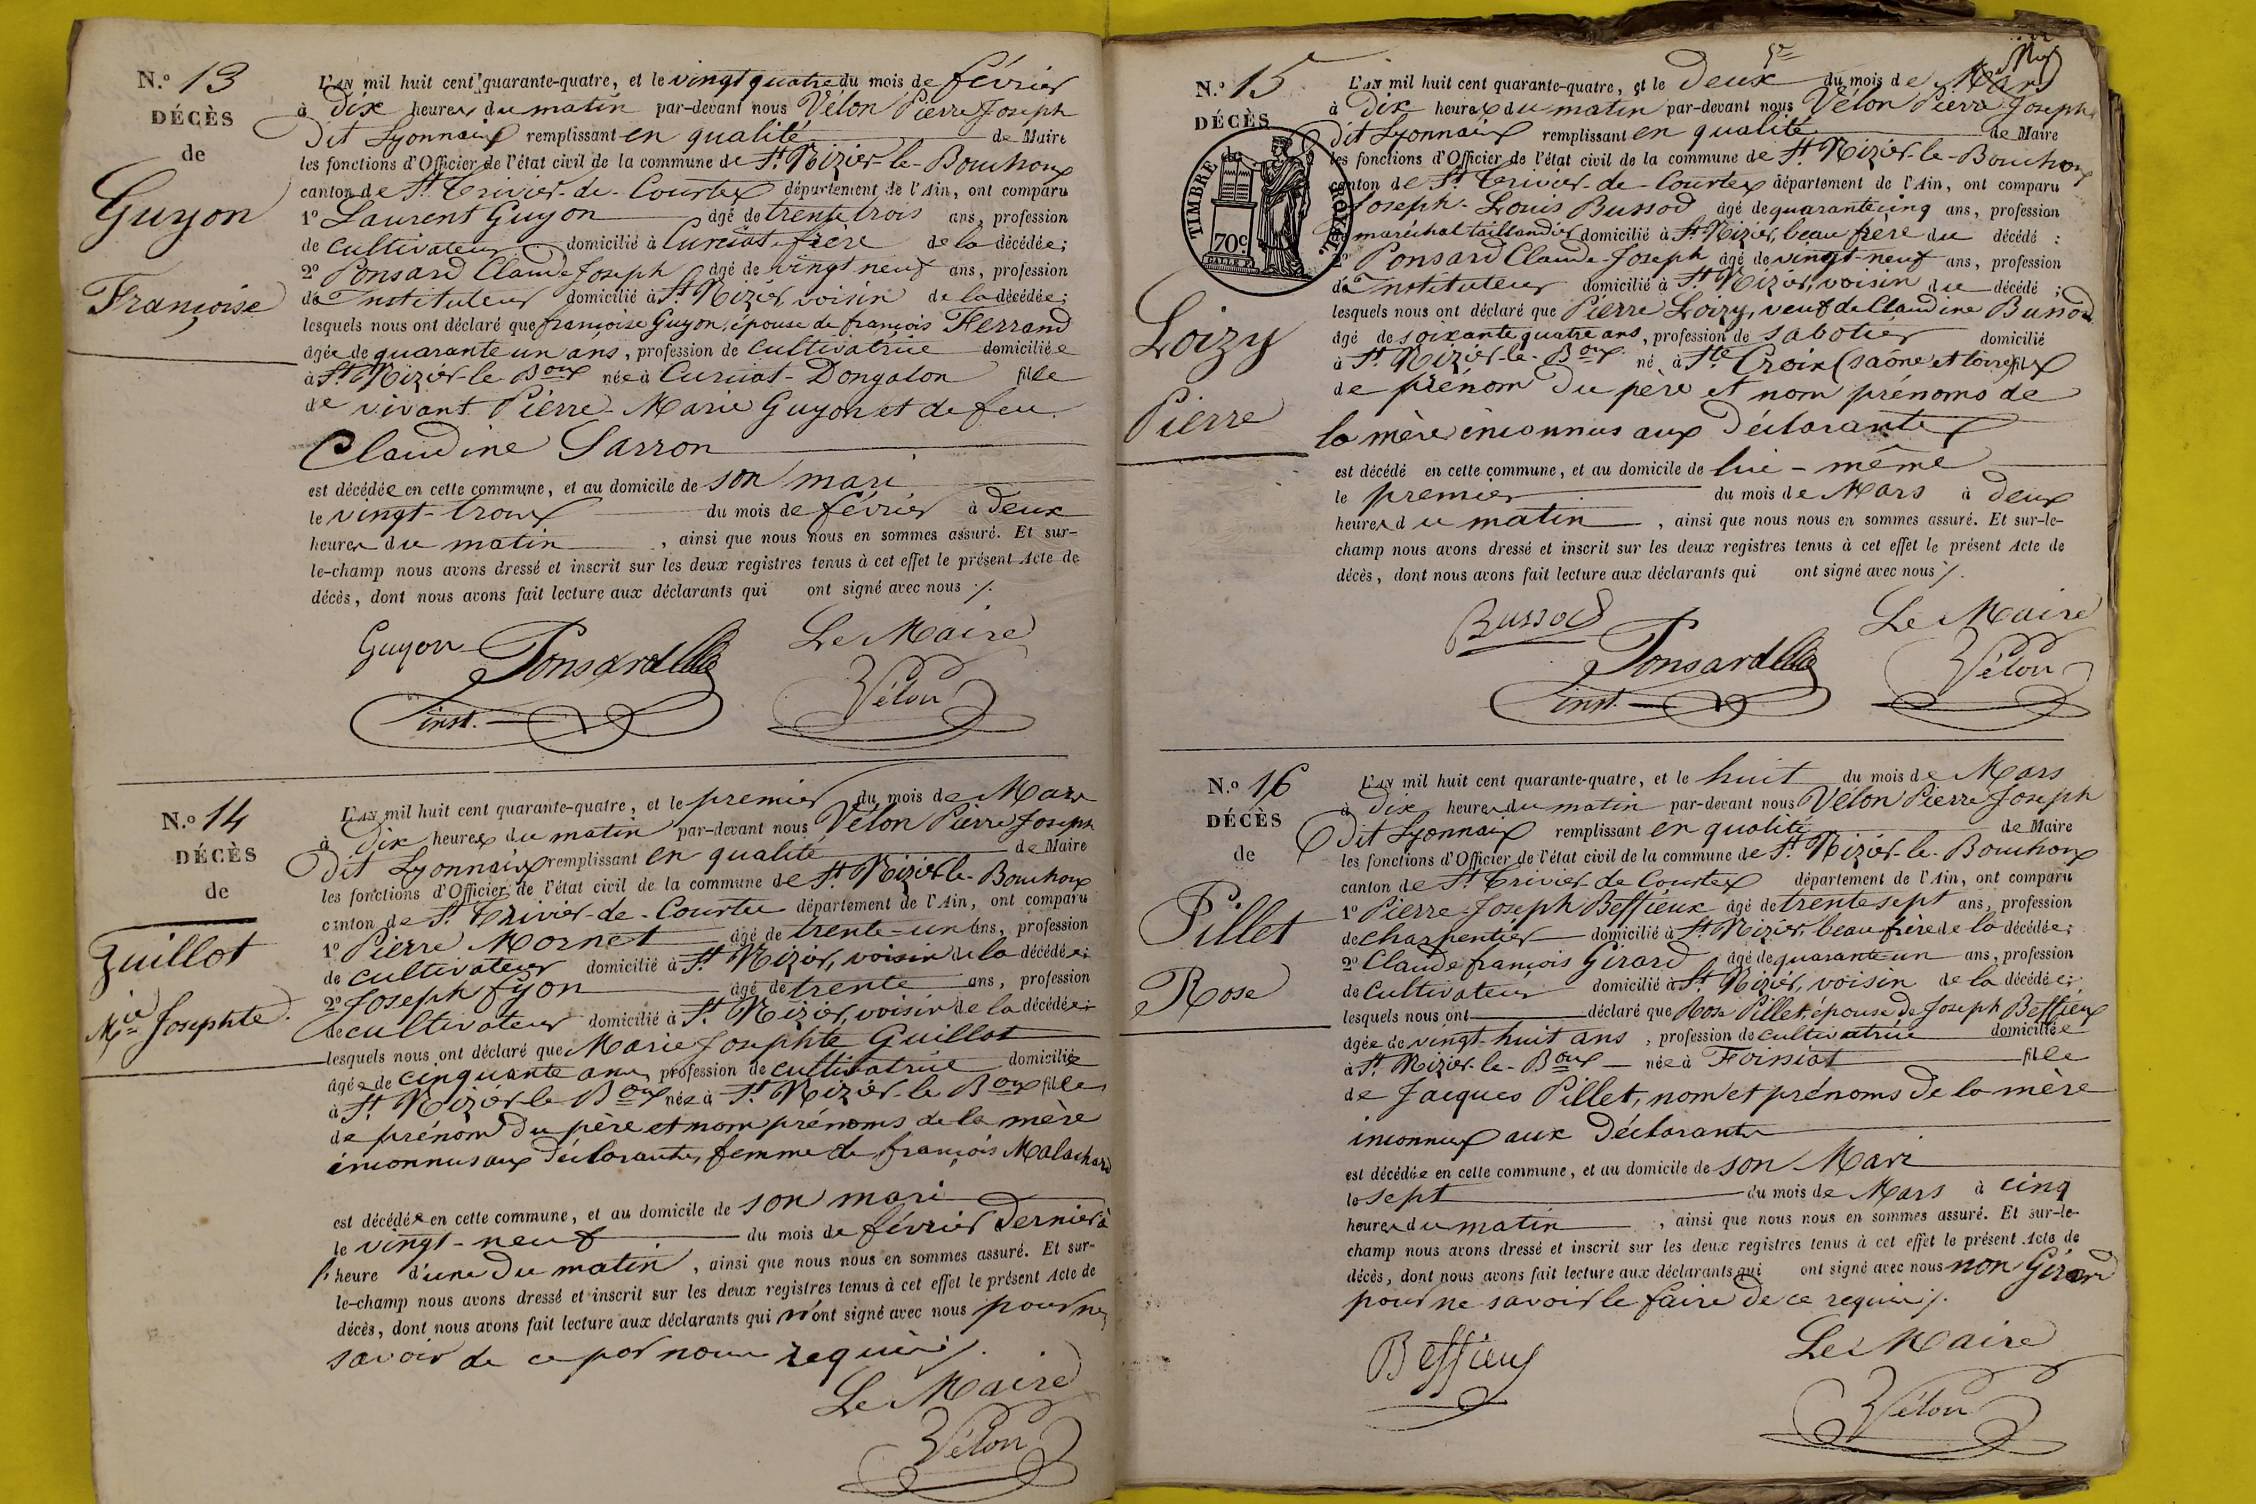 N.º 13
DÉCÈS
de
Guyon
Françoise
L'AN mil huit cent quarante-quatre, et le vingt quatre du mois de février
à Dix heures du matin par-devant nous Vélon Pierre Joseph
Dit Lyonnais remplissant en qualité de Maire
les fonctions d'Officier de l'état civil de la commune de St Nizier-le-Bouchoux
canton de St Trivier-de-Courtes département de l'Ain, ont comparu
1º Laurent Guyon âgé de trente trois ans, profession
de cultivateur domicilié à Curciat frère de la décédée;
2º Ponsard Claude Joseph âgé de vingt neuf ans, profession
de Instituteur domicilié à St Nizier, voisin de la décédée;
lesquels nous ont déclaré que françoise Guyon, épouse de françois Herrand
âgée de quarante un ans, profession de cultivatrice domiciliée
à St Nizier-le-Boux née à Curciat-Dongalon fille
de vivant Pierre-Marie Guyon et de feu
Claudine Sarron
est décédée en cette commune, et au domicile de son mari
le vingt-trois du mois de février à Deux
heures du matin, ainsi que nous nous en sommes assuré. Et sur-
le-champ nous avons dressé et inscrit sur les deux registres tenus à cet effet le présent Acte de
décès, dont nous avons fait lecture aux déclarants qui ont signé avec nous ./.
Guyon Ponsard Le Maire
inst. Vélon
N.º 14
DÉCÈS
de
Guillot
Mie Josephte.
L'AN mil huit cent quarante-quatre, et le premier du mois de Mars
à Dix heures du matin par-devant nous Vélon Pierre Joseph
Dit Lyonnais remplissant en qualité de Maire
les fonctions d'Officier de l'état civil de la commune de St Nizier-le-Bouchoux
canton de St Trivier-de-Courtes département de l'Ain, ont comparu
1º Pierre Mornet âgé de trente-un ans, profession
de cultivateur domicilié à St Nizier, voisin de la décédée;
2º Joseph fyon âgé de trente ans, profession
de cultivateur domicilié à St Nizier, voisin de la décédée;
lesquels nous ont déclaré que Marie Josephte Guillot
âgée de cinquante ans, profession de cultivatrice domiciliée
à St Nizier-le-Boux née à St Nizier-le-Boux fille
de prénom du père et nom prénoms de la mère
inconnus aux déclarants, femme de françois Malachard
est décédée en cette commune, et au domicile de son mari
le vingt-neuf du mois de février dernier à
l'heure d'une du matin, ainsi que nous nous en sommes assuré. Et sur-
le-champ nous avons dressé et inscrit sur les deux registres tenus à cet effet le présent Acte de
décès, dont nous avons fait lecture aux déclarants qui n'ont signé avec nous pour ne
savoir de ce par nous requis ./.
Le Maire
Vélon
N.º 15
DÉCÈS
TIMBRE ROYAL.
70c
Loizy
Pierre
L'AN mil huit cent quarante-quatre, et le deux du mois de Mars
à Dix heures du matin par-devant nous Vélon Pierre Joseph
Dit Lyonnais remplissant en qualité de Maire
les fonctions d'Officier de l'état civil de la commune de St Nizier-le-Bouchoux
canton de St Trivier-de-Courtes département de l'Ain, ont comparu
Joseph-Louis Bussod âgé de quarante cinq ans, profession
de maréchal taillandier domicilié à St Nizier, beau frère du décédé;
2º Ponsard Claude-Joseph âgé de vingt-neuf ans, profession
de Instituteur domicilié à St Nizier, voisin du décédé;
lesquels nous ont déclaré que Pierre Loizy, veuf de Claudine Bussod
âgé de soixante quatre ans, profession de sabotier domicilié
à St Nizier-le-Boux né à Ste Croix (saône et loire) fils
de prénom du père et nom prénoms de
la mère inconnus aux déclarants
est décédé en cette commune, et au domicile de lui-même
le premier du mois de Mars à deux
heures du matin, ainsi que nous nous en sommes assuré. Et sur-le-
champ nous avons dressé et inscrit sur les deux registres tenus à cet effet le présent Acte de
décès, dont nous avons fait lecture aux déclarants qui ont signé avec nous ./.
Bussod Ponsard Le Maire
inst. Vélon
N.º 16
DÉCÈS
de
Pillet
Rose
L'AN mil huit cent quarante-quatre, et le huit du mois de Mars
à dix heures du matin par-devant nous Vélon Pierre Joseph
Dit Lyonnais remplissant en qualité de Maire
les fonctions d'Officier de l'état civil de la commune de St Nizier-le-Bouchoux
canton de St Trivier-de-Courtes département de l'Ain, ont comparu
1º Pierre-Joseph Beffieux âgé de trente sept ans, profession
de charpentier domicilié à St Nizier, beau frère de la décédée;
2º Claude françois Girard âgé de quarante un ans, profession
de cultivateur domicilié à St Nizier, voisin de la décédée;
lesquels nous ont déclaré que Rose Pillet, épouse de Joseph Beffieux
âgée de vingt-huit ans, profession de cultivatrice domiciliée
à St Nizier-le-Boux née à Foissiat fille
de Jacques Pillet, nom et prénoms de la mère
inconnus aux déclarants
est décédée en cette commune, et au domicile de son Mari
le sept du mois de Mars à cinq
heures du matin, ainsi que nous nous en sommes assuré. Et sur-le-
champ nous avons dressé et inscrit sur les deux registres tenus à cet effet le présent Acte de
décès, dont nous avons fait lecture aux déclarants qui ont signé avec nous non Girard
pour ne savoir le faire de ce requis ./.
Beffieux Le Maire
Vélon